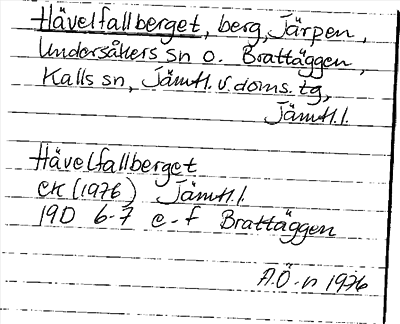 Hävelfallberget, berg, Järpen,
Undersåkers sn o. Brattäggen,
Kalls sn, Jämtl. v. doms. tg,
Jämtl. l.
Hävelfallberget
CK (1976) Jämtl. l.
19D 6-7 e-f Brattäggen
A.Ö-n 1976